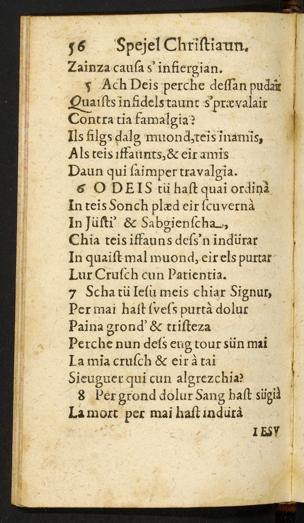 56 Spejel Chriſtiaun.
Zainza cauſa s' inſiergian.
5 Ach Deis perche deſſan pudair
Quaiſts infidels taunt s'prævalair
Contra tia famalgia?
Ils filgs dalg muond, teis inamis,
Als teis iffaunts, & eir amis
Daun qui ſaimper travalgia.
6 O DEIS tü haſt quai ordinà
In teis Sonch plæd eir ſcuvernà
In Jüſti' & Sabgienſcha,
Chia teis iffauns deſſ'n indürar
In quaiſt mal muond, eir els purtar
Lur Cruſch cun Patientia.
7 Scha tü Ieſu meis chiar Signur,
Per mai haſt ſveſs purtà dolur
Paina grond' & triſteza
Perche nun deſs eug tour sün mai
La mia cruſch & eir à tai
Sieuguer qui cun algrezchia?
8 Per grond dolur Sang haſt sügià
La mort per mai haſt indürà
IESV